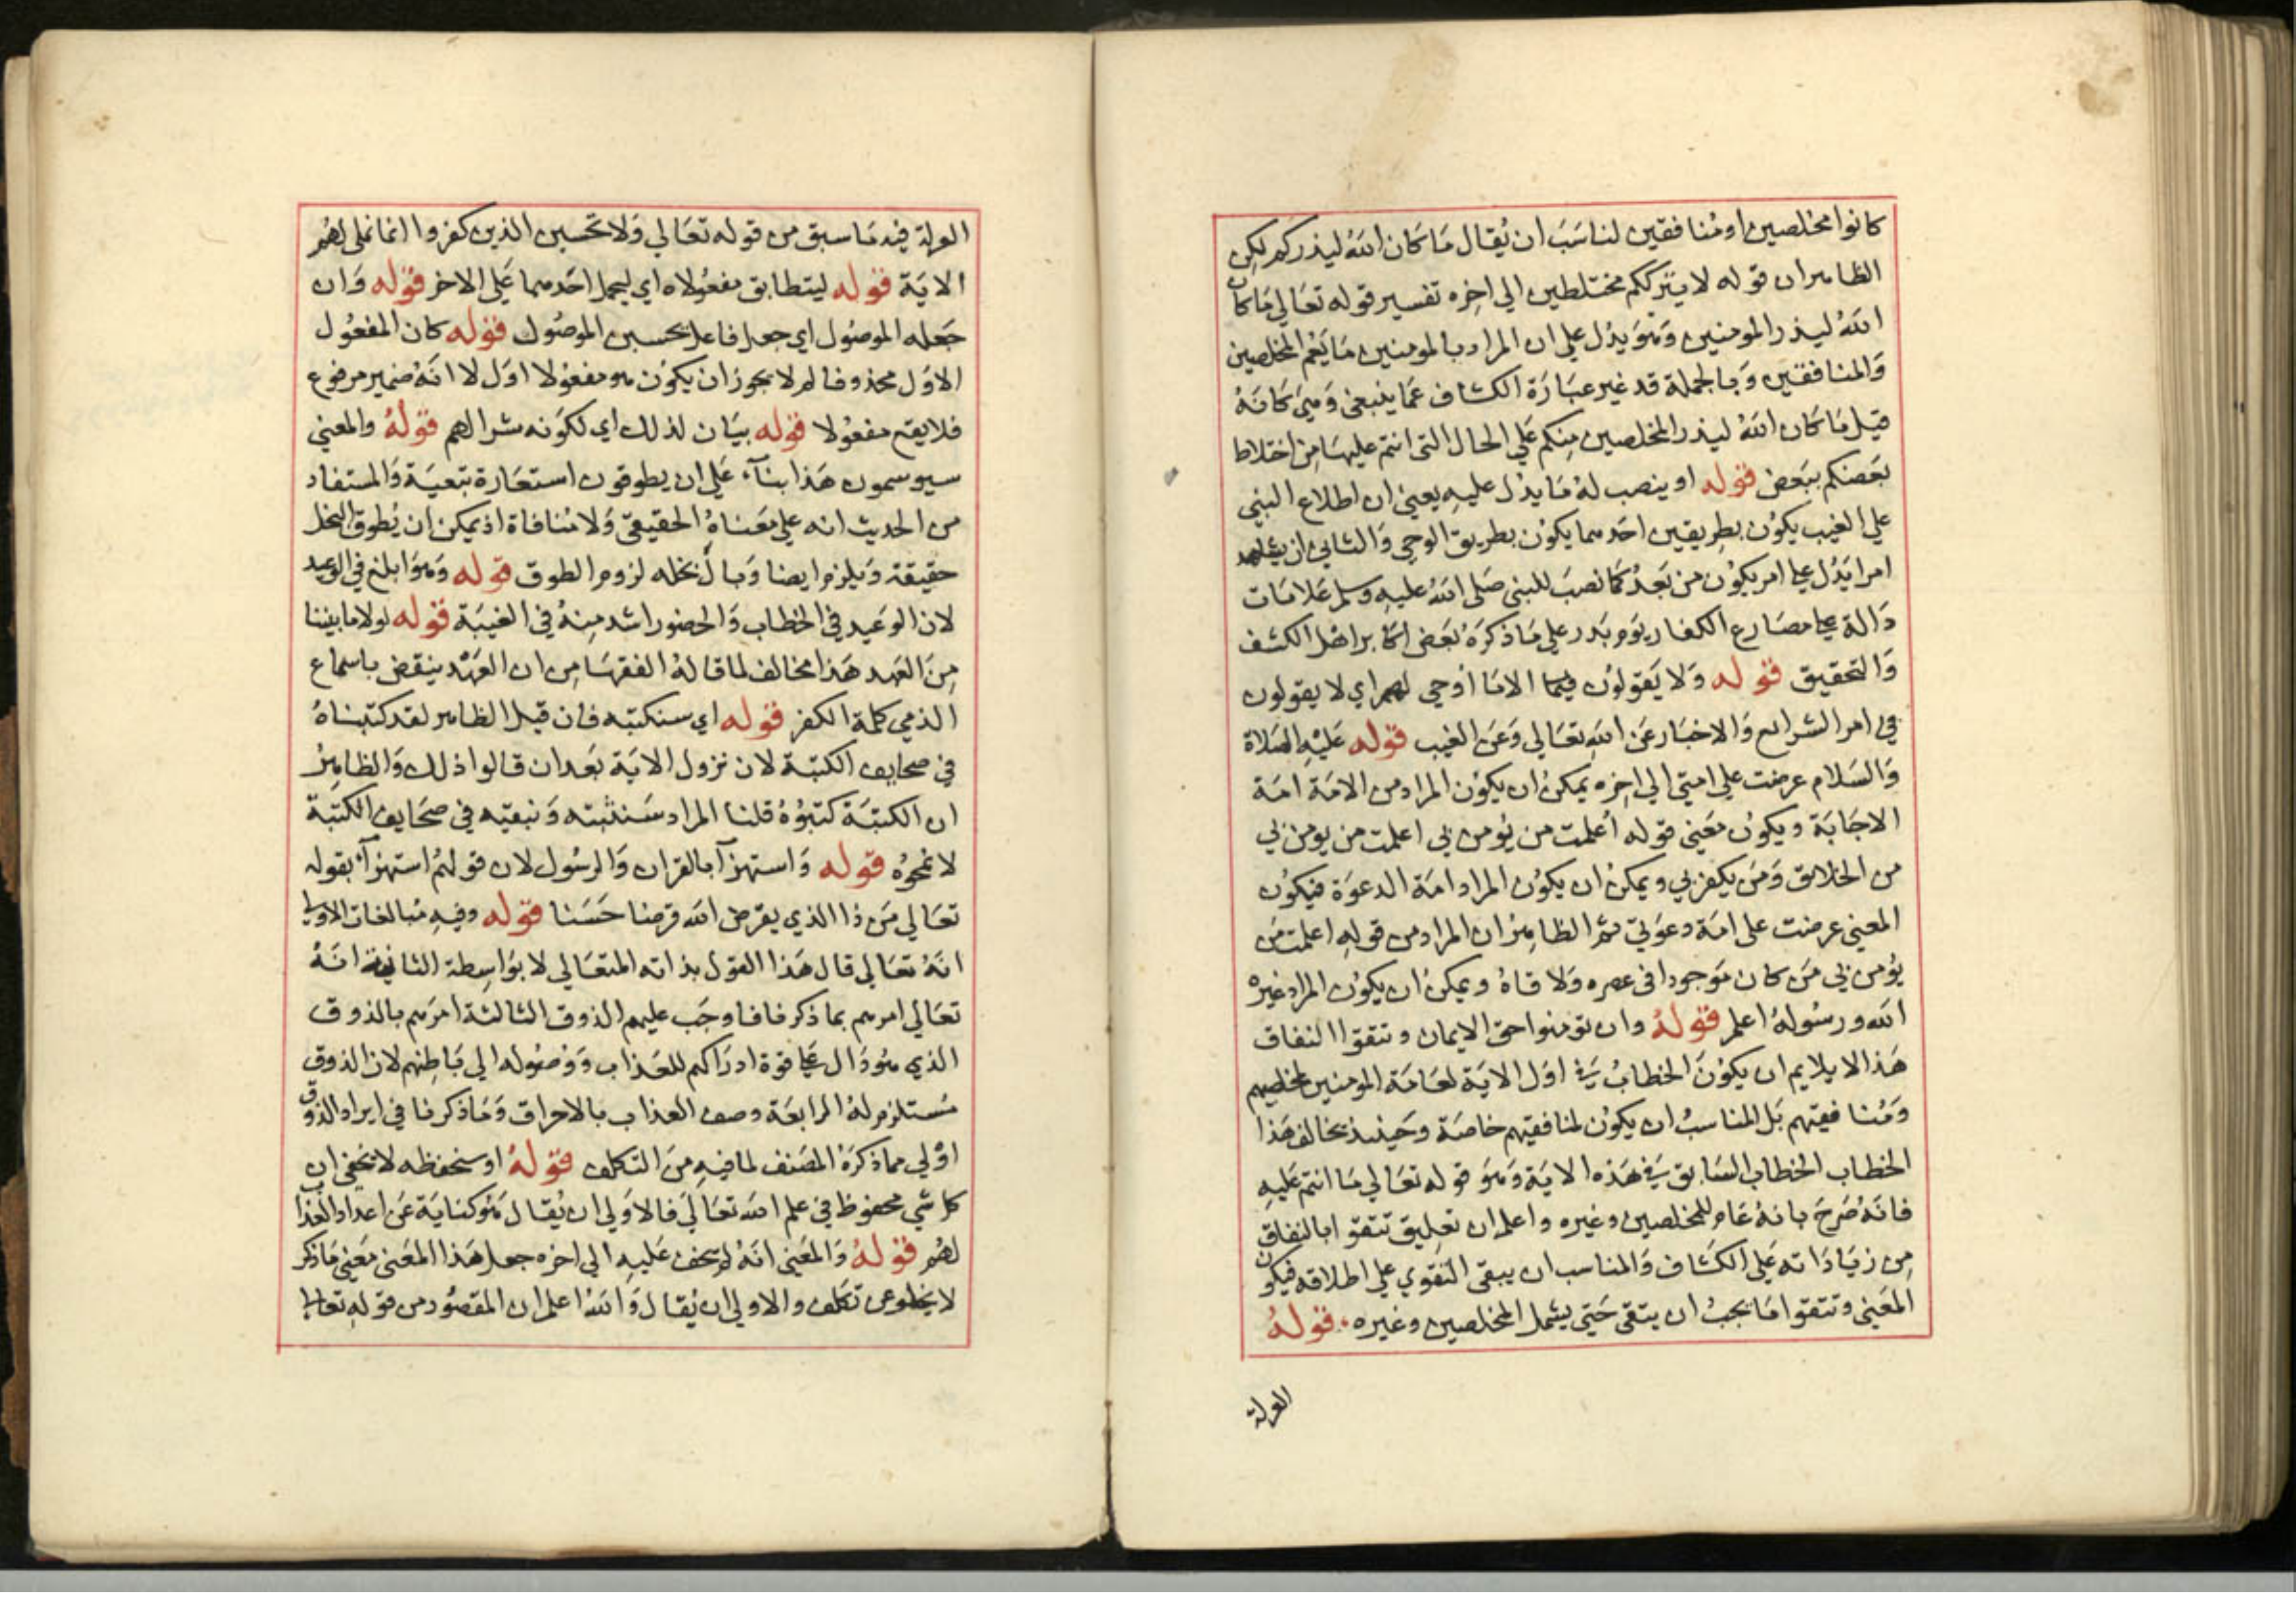 كانوا مخلصين او منافقين لناسب ان يقال ما كان الله ليذركم لكن
الظاهر ان قوله لا يترككم مختلطين الي اخره تفسير قوله تعالي ما كان
الله ليذر المومنين وهو يدل علي ان المراد بالمومنين ما يعم المخلصين
والمنافقين وبالجملة قد غير عبارة الكشاف عما ينبغي وهي كانه
قيل ما كان الله ليذر المخلصين منكم علي الحال التي انتم عليها من اختلاط
بعضكم ببعض قوله او ينصب له ما يدل عليه يعني ان اطلاع النبي
علي الغيب يكون بطريقين احدهما يكون بطريق الوحي والثاني ان
امرا يدل علي امر يكون من بعد كما نصب للنبي صلي الله عليه وسلم علامات
دالة علي مصارع الكفار يوم بدر علي ما ذكره بعض اكابر اهل الكشف
والتحقيق قوله ولا يقولون فيما الا ما اوحي لهم اي لا يقولون
في امر الشرايع والاخبار عن الله تعالي وعن الغيب قوله عليه الصلاة
والسلام عرضت علي امتي الي اخره يمكن ان يكون المراد من الامة امة
الاجابة ويكون معني قوله اعلمت من يؤمن بي اعلمت من يومن بي
من الخلائق ومن يكفر بي ويمكن ان يكون المراد امة الدعوة فيكون
المعني عرضت علي امة دعوتي ثم الظاهر ان المراد من قوله اعلمت من
يؤمن بي من كان موجودا في عصره ولاقاه ويمكن ان يكون المراد غيره
الله ورسوله اعلم قوله وان تؤمنوا حق الايمان وتتقوا النفاق
هذا لا يلايم ان يكون الخطاب في اول الاية لعامة المومنين مخلصهم
ومنافقيهم بل المناسب ان يكون لمنافقيهم خاصة وحينيذ يخالف هذا
الخطاب الخطاب السابق في هذه الاية وهو قوله تعالي ما انتم عليه
فانه صرح بانه عام للمخلصين وغيره واعلم ان تعليق تتقوا بالنفاق
من زياداته علي الكشاف والمناسب ان يبقي التقوي علي اطلاقه فيكون
المعني وتتقوا ما يجب ان يتقي حتي يشمل المخلصين وغيره قوله
العرلة
العرلة فيه ما سبق من قوله تعالي ولا تحسبن الذين كفروا انما نملي لهم
الاية قوله ليتطابق مفعولاه اي ليحمل احدهما علي الاخر قوله وان
جعله الموصول اي جعل فاعل يحسبن الموصول قوله كان المفعول
الاول محذوفا لم لا يجوز ان يكون هو مفعولا اول لا انه ضمير مرفوع
فلا يقع مفعولا قوله بيان لذلك اي لكونه شرا لهم قوله والمعني
سيوسمون هذا بناء علي ان يطوقون استعارة تبعية والمستفاد
من الحديث انه علي معناه الحقيقي ولا منافاة اذ يمكن ان يطوق البخل
حقيقة ويلزم ايضا وبال بخله لزوم الطوق قوله وهو ابلغ في الوعيد
لان الوعيد في الخطاب والحضور اشد منه في الغيبة قوله لولا ما بيننا
من العهد هذا مخالف لما قاله الفقها من ان العهد ينقض باسماع
الذمي كلمة الكفر قوله اي سنكتبه فان قيل الظاهر لقد كتبناه
في صحايف الكتبة لان نزول الاية بعد ان قالوا ذلك والظاهر
ان الكتبة كتبوه قلنا المراد سنثبته ونبقيه في صحايف الكتبة
لا نمحوه قوله واستهزآ بالقران والرسول لان قولهم استهزآ بقوله
تعالي من ذا الذي يقرض الله قرضا حسنا قوله وفيه مبالغات الاولي
انه تعالي قال هذا القول بذاته المتعالي لا بواسطة الثانية انه
تعالي امرهم بما ذكر فافا وجب عليهم الذوق الثالثة امرهم بالذوق
الذي هو دال علي قوة ادراكهم للعذاب ووصوله الي باطنهم لان الذوق
مستلزم له الرابعة وصف العذاب بالاحراق وما ذكرنا في ايراد الذوق
اولي مما ذكره المصنف لما فيه من التكلف قوله او سنحفظه لا يخفي ان
كل شي محفوظ في علم الله تعالي فالاولي ان يقال هو كناية عن اعداد العذاب
لهم قوله والمعني انه لم يخف عليه الي اخره جعل هذا المعني معني ما ذكر
لا يخلو عن تكلف والاولي ان يقال والله اعلم ان المقصود من قوله تعالي